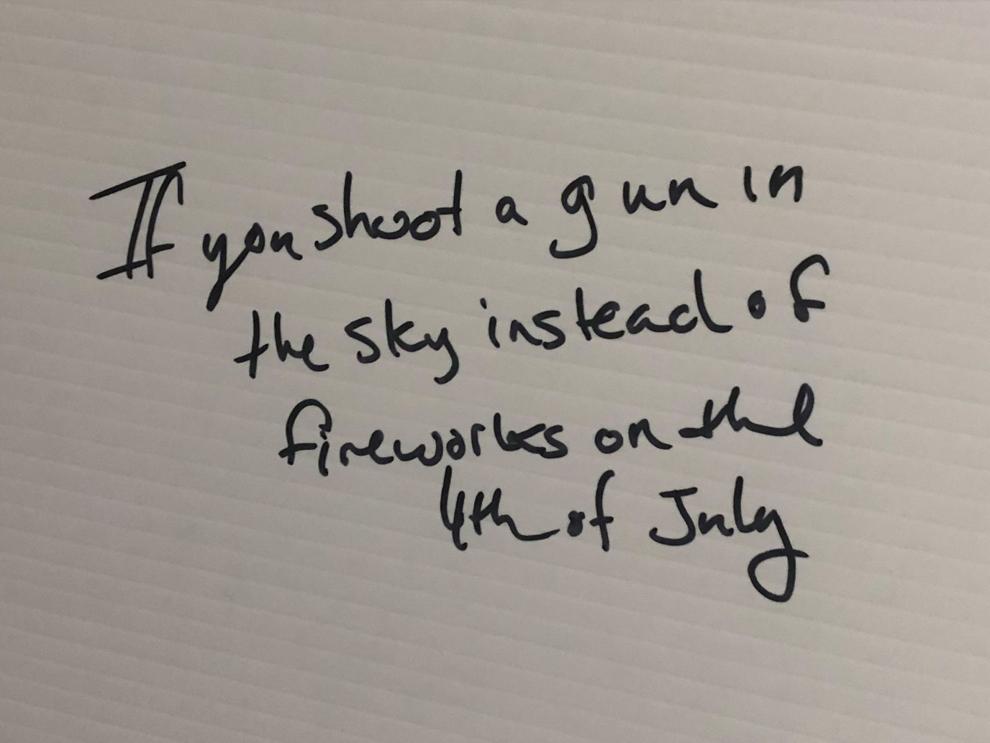 If you shoot a gun in
the sky instead of
fireworks on the
4th of July